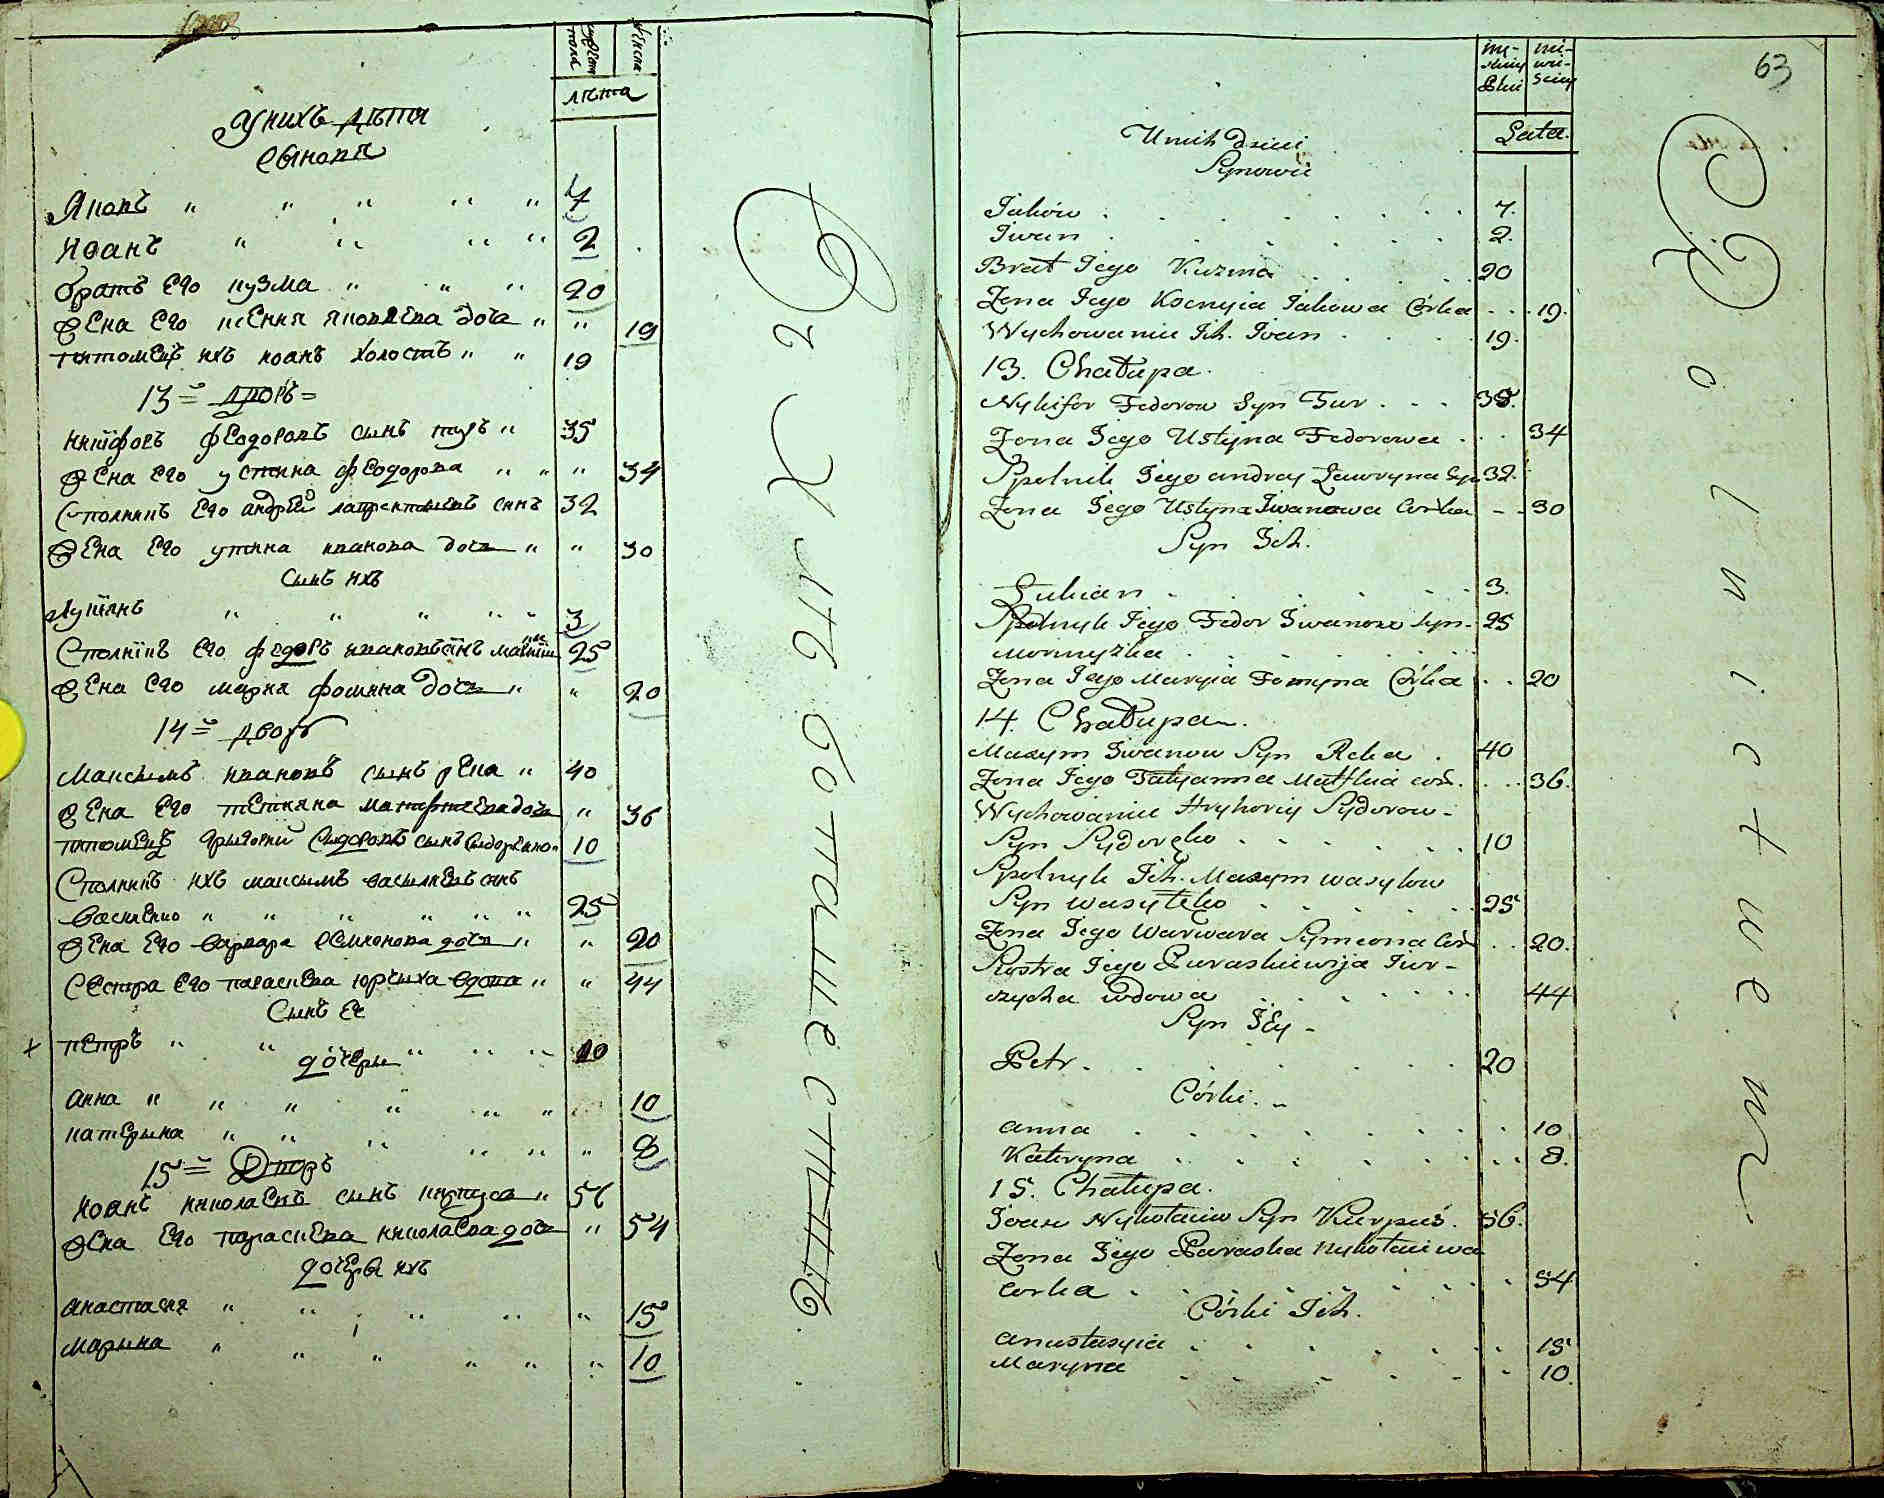 лѣта
У нихъ дѣти
сынови
Яковъ " " " " " 7
Иоанъ " " " " 2
братъ Его кузма " " " 20
жЕна Его ксЕния яковлЕва дочь " " 19
питомЕцъ ихъ иоанъ холостъ " " 19
13й дворъ
никифоръ фЕодоровъ сынъ туръ " 35
жЕна Его устина фЕодорова " " " 34
Сполникъ Его андрЕй лаврентиевъ синъ 32
жЕна Его устина иванова дочь " " 30
Сынъ ихъ
Лукiянъ " " " " " 3
Сполнiкъ Его фЕдоръ ивановъ синъ 25
жЕна Его мария фомина дочь " " 20
14й дворъ
Максымъ ивановъ сынъ рЕпа " 40
жЕна Его тЕтияна матфеЕва дочь " 36
питомЕцъ григорий Сидоровъ сынъ Сидоренко " 10
Сполникъ ихъ максымъ васылиевъ синъ
василЕнко " " " " " " 25
жЕна Его варвара сЕмионова дочь " " 20
СЕстра Его параскЕва юрчыха вдова " " 44
Сынъ Ее
+ пЕтръ " " " " " " 20
дочЕры
Анна " " " " " " 10
катЕрына " " " " " " 8
15й Дворъ
иоанъ николаЕвъ сынъ карпусь " 56
жЕна Его параскЕва николаЕва дочь " 54
дочЕри ихъ
Анастасия " " " " " 15
марына " " " " " " 10
63
Lata.
U nich Dzieci
Synowie
Jaków . . . . . . . 7.
Iwan . . . . . . . 2.
Brat Jego Kuzma . . . . 20
Zona Jego Xsenyia Jakowa Córka . . . 19.
Wychowaniec Ich. Iwan . . . . 19.
13. Chałupa.
Nykifor Fedorow Syn Tur . . . 35.
Zona Jego Ustyna Fedorowa . . . 34
Spolnik Jego andrey Ławryna Syn 32.
Zona Jego Ustyna Iwanowa Corka - - 30
Syn Ich.
Łukian . . . . . . . 3.
Spolnyk Jego Fedor Iwanow Syn - 25
Zona Jego Maryia Fomyna Córka . . 20
14. Chałupa.
Maxym Iwanow Syn Repa . 40
Zona Jego Tatyanna Matfija cor. . . . 36.
Wychowaniec Hryhoriy Sydorow -
Syn Sydorcko . . . . . . . 10
Spolnyk Ich. Maxym wasylow
Syn wasylko . . . . . . . 25
Zona Jego Warwara Symeona Cor . . 20.
Siostra Jego Paraskiewija Jur-
czycha wdowa . . . . . . . 44
Syn Jey -
Petr . . . . . . . . 20
Córki. -
anna . . . . . . . . 10
Kateryna . . . . . . . . 8.
15. Chałupa.
Iwan Nykołaiw Syn Karpuś. 56.
Zona Jego Paraska Nykołaiewa
corka . . . . . . . . 54
Córki Ich.
anastasyia . . . . . . . 15
Maryna . . . . . . . 10.